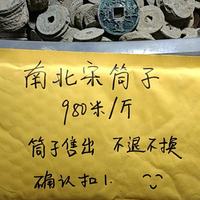 南北宋筒子
980米/斤
筒子售出 不退不换
确认扣1.